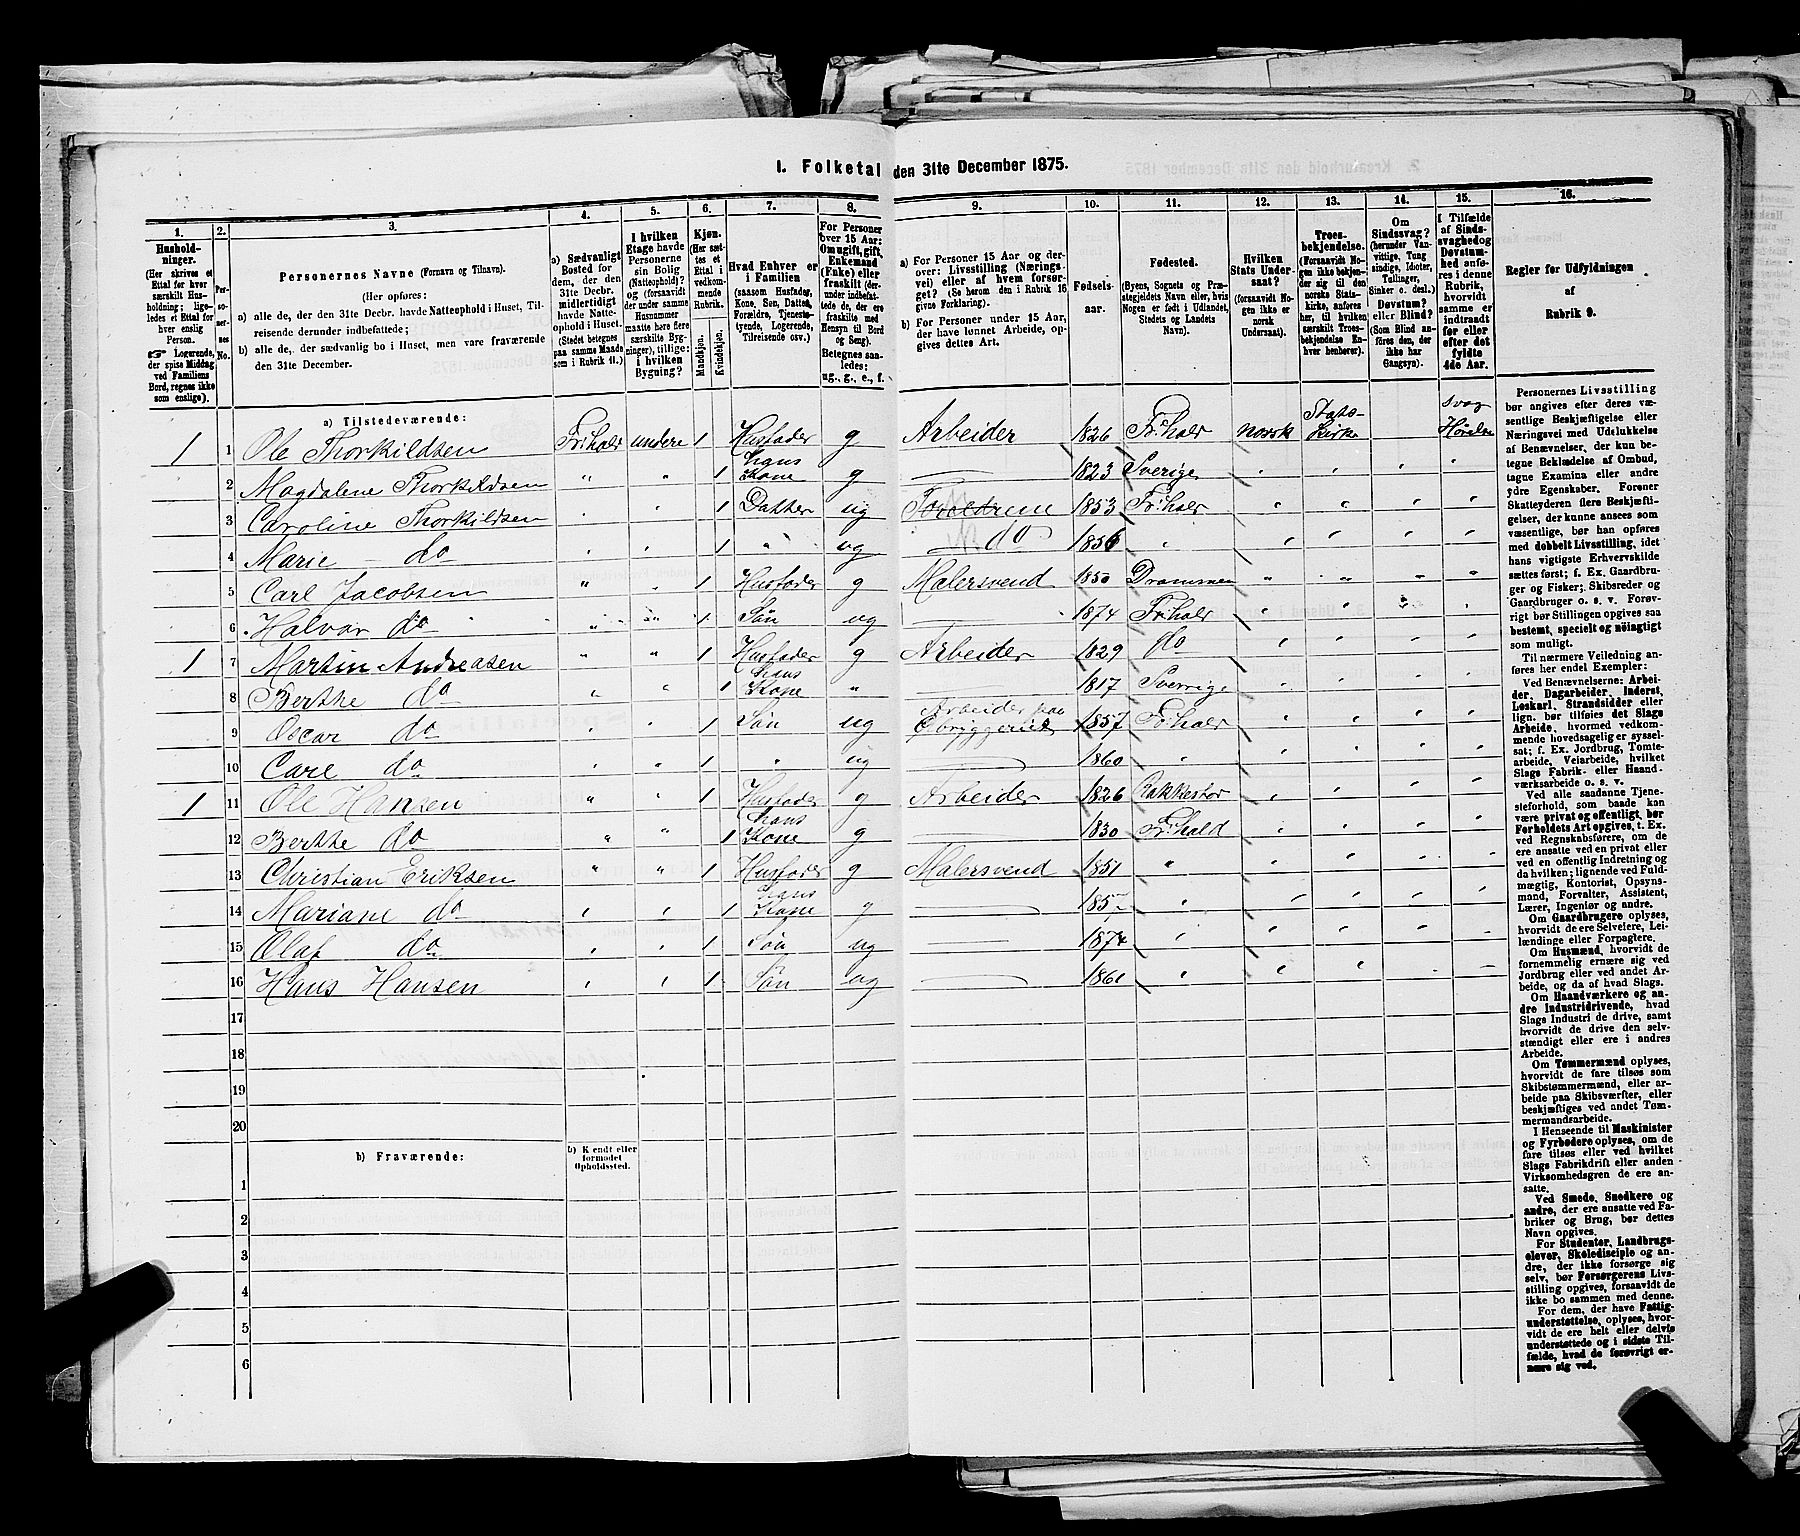 1. Folketal den 31te December 1875.
1. 2. 3. 4. 5. 6. 7. 8. 9. 10. 11. 12. 13. 14. 15. 16.
Husholdninger.
(Her skrives et Ettal for hver særskilt Husholdning; ligeledes et Ettal for hver enslig Person.
☞ Logerende, der spise Middag ved Familiens Bord, regnes ikke som enslige).
Personernes No.
Personernes Navne (Fornavn og Tilnavn).
(Her opføres:
a) alle de, der den 31te Decbr. havde Natteophold i Huset, Tilreisende derunder indbefattede;
b) alle de, der sædvanlig bo i Huset, men vare fraværende den 31te December.
a) Sædvanligt Bosted for dem, der den 31te Decbr. midlertidigt havde Natteophold i Huset. (Stedet betegnes paa samme Maade som i Rubrik 11.)
I hvilken Etage havde Personerne sin Bolig (Natteophold)? og (forsaavidt der under samme Husnummer maatte høre flere særskilte Bygninger), tillige: i hvilken Bygning?
Kjøn. (Her sættes et Ettal i vedkommende Rubrik.
Mandkjøn. Kvindekjøn.
Hvad Enhver er i Familien
(saasom Husfader, Kone, Søn, Datter, Forældre, Tjenestetyende, Logerende, Tilreisende osv.)
For Personer over 15 Aar: Om ugift, gift, Enkemand (Enke) eller fraskilt (derunder indbefattede de, der ere fraskilte med Hensyn til Bord og Seng). Betegnes saaledes: ug., g., e., f.
a) For Personer 15 Aar og derover: Livsstilling (Næringsvei) eller af hvem forsørget? (Se herom den i Rubrik 16 givne Forklaring).
b) For Personer under 15 Aar, der have lønnet Arbeide, opgives dettes Art.
Fødselsaar.
Fødested.
(Byens, Sognets og Præstegjeldets Navn eller, hvis Nogen er født i Udlandet, Stedets og Landets Navn).
Hvilken Stats Undersaat? (forsaavidt Nogen ikke er norsk Undersaat).
Troesbekjendelse. (Forsaavidt Nogen ikke bekjender sig til den norske Statskirke, anføres her, til hvilken særskilt Troesbekjendelse Enhver henhører).
Om Sindssvag? (herunder Vanvittige, Tungsindige, Idioter, Tullinger, Sinker o. desl.). Døvstum? eller Blind? (Som Blind anføres den, der ikke har Gangsyn).
I Tilfælde af Sindssvaghed og Døvstumhed anføres i denne Rubrik, hvorvidt samme er indtraadt før eller efter det fyldte 4de Aar.
Regler for Udfyldningen af Rubrik 9.
a) Tilstedeværende:
1 1 Ole Thorkildsen Fr:hald undere 1 Husfader g Arbeider 1826 Fr:hald norsk Stats-kirke svag Hørelse
2 Magdalene Thorkildsen " " 1 hans Kone g — 1823 Sverige
3 Caroline Thorkildsen 1 Datter ug Forældrene 1853 Fr:hald
4 Marie do 1 " ug do 1856 "
5 Carl Jacobsen " 1 Husfader g Malersvend 1850 Drammen " " " "
6 Halvar do " " 1 Søn ug — 1874 Fr:hald
1 7 Martin Andreasen " " 1 Husfader g Arbeider 1829 do
8 Berthe do " " 1 hans Kone " — 1817 Sverrige
9 Oscar do " 1 Søn ug Arbeider paa 1857 Fr:hald
10 Carl do 1 " ug — 1860 "
1 11 Ole Hansen " " 1 Husfader g Arbeider 1826 Rakkestad
12 Berthe do " " 1 hans Kone g — 1830 Fr:hald
13 Christian Eriksen " " 1 Husfader g Malersvend 1851 "
14 Mariane do 1 hans Kone g — 1852
15 Olaf do 1 Søn ug — 1874
16 Hans Hansen 1 Søn ug — 1861
17
18
19
20
b) Fraværende:
b) Kjendt eller formodet Opholdssted.
1
2
3
4
5
6
Personernes Livsstilling
bør angives efter deres væ-
sentlige Beskjæftigelse eller
Næringsvei med Udelukkelse
af Benævnelser, der kun be-
tegne Beklædelse af Ombud,
tagne Examina eller andre
ydre Egenskaber. Forener
Skatteyderen flere Beskjæfti-
gelser, der kunne ansees som
væsentlige, bør han opføres
med dobbelt Livsstilling, idet
hans vigtigste Erhvervskilde
sættes først; f. Ex. Gaardbru-
ger og Fisker; Skibsreder og
Gaardbruger o. s. v. Forøv-
rigt bør Stillingen opgives saa
bestemt, specielt og nøiagtigt
som muligt.
Til nærmere Veiledning an-
føres her endel Exempler:
Ved Benævnelserne: Arbei-
der, Dagarbeider, Inderst,
Løskarl, Strandsidder eller
lign. bør tilføies det Slags
Arbeide, hvormed vedkom-
mende hovedsagelig er syssel-
sat; f. Ex. Jordbrug, Tomte-
arbeide, Veiarbeide, hvilket
Slags Fabrik- eller Haand-
værksarbeide o. s. v.
Ved alle saadanne Tjene-
steforhold, som baade kan
være privat og offentligt, bør
Forholdets Art opgives, t. Ex.
ved Regnskabsførere, om de
ere ansatte ved en privat eller
ved en offentlig Indretning og
da hvilken; lignende ved Fuld-
mægtig, Kontorist, Opsyns-
mand, Forvalter, Assistent,
Lærer, Ingeniør og andre.
Om Gaardbrugere oplyses,
hvorvidt de ere Selveiere, Lei-
lændinge eller Forpagtere.
Om Husmænd, hvorvidt de
fornemmelig ernære sig ved
Jordbrug eller ved andet Ar-
beide, og da af hvad Slags.
Om Haandværkere og an-
dre Industridrivende, hvad
Slags Industri de drive, samt
hvorvidt de drive den selv-
stændigt eller ere i andres
Arbeide.
Om Tømmermænd oplyses,
hvorvidt de fare tilsøs som
Skibstømmermænd, eller ar-
beide paa Skibsværfter, eller
beskjæftiges ved andet Tøm-
mermandsarbeide.
I Henseende til Maskinister
og Fyrbødere oplyses, om de
fare tilsøs eller ved hvilket
Slags Fabrikdrift eller anden
Virksomhedsgren de ere an-
satte.
Ved Smede, Snedkere og
andre, der ere ansatte ved Fa-
briker og Brug, bør dettes
Navn opgives.
For Studenter, Landbrugs-
elever, Skoledisciple og an-
dre, der ikke forsørge sig
selv, bør Forsørgerens Livs-
stilling opgives, forsaavidt de
ikke bo sammen med denne.
For dem, der have Fattig-
understøttelse, oplyses, hvor-
vidt de ere helt eller delvis
understøttede og i sidste Til-
fælde, hvad de forøvrigt er-
nære sig ved.